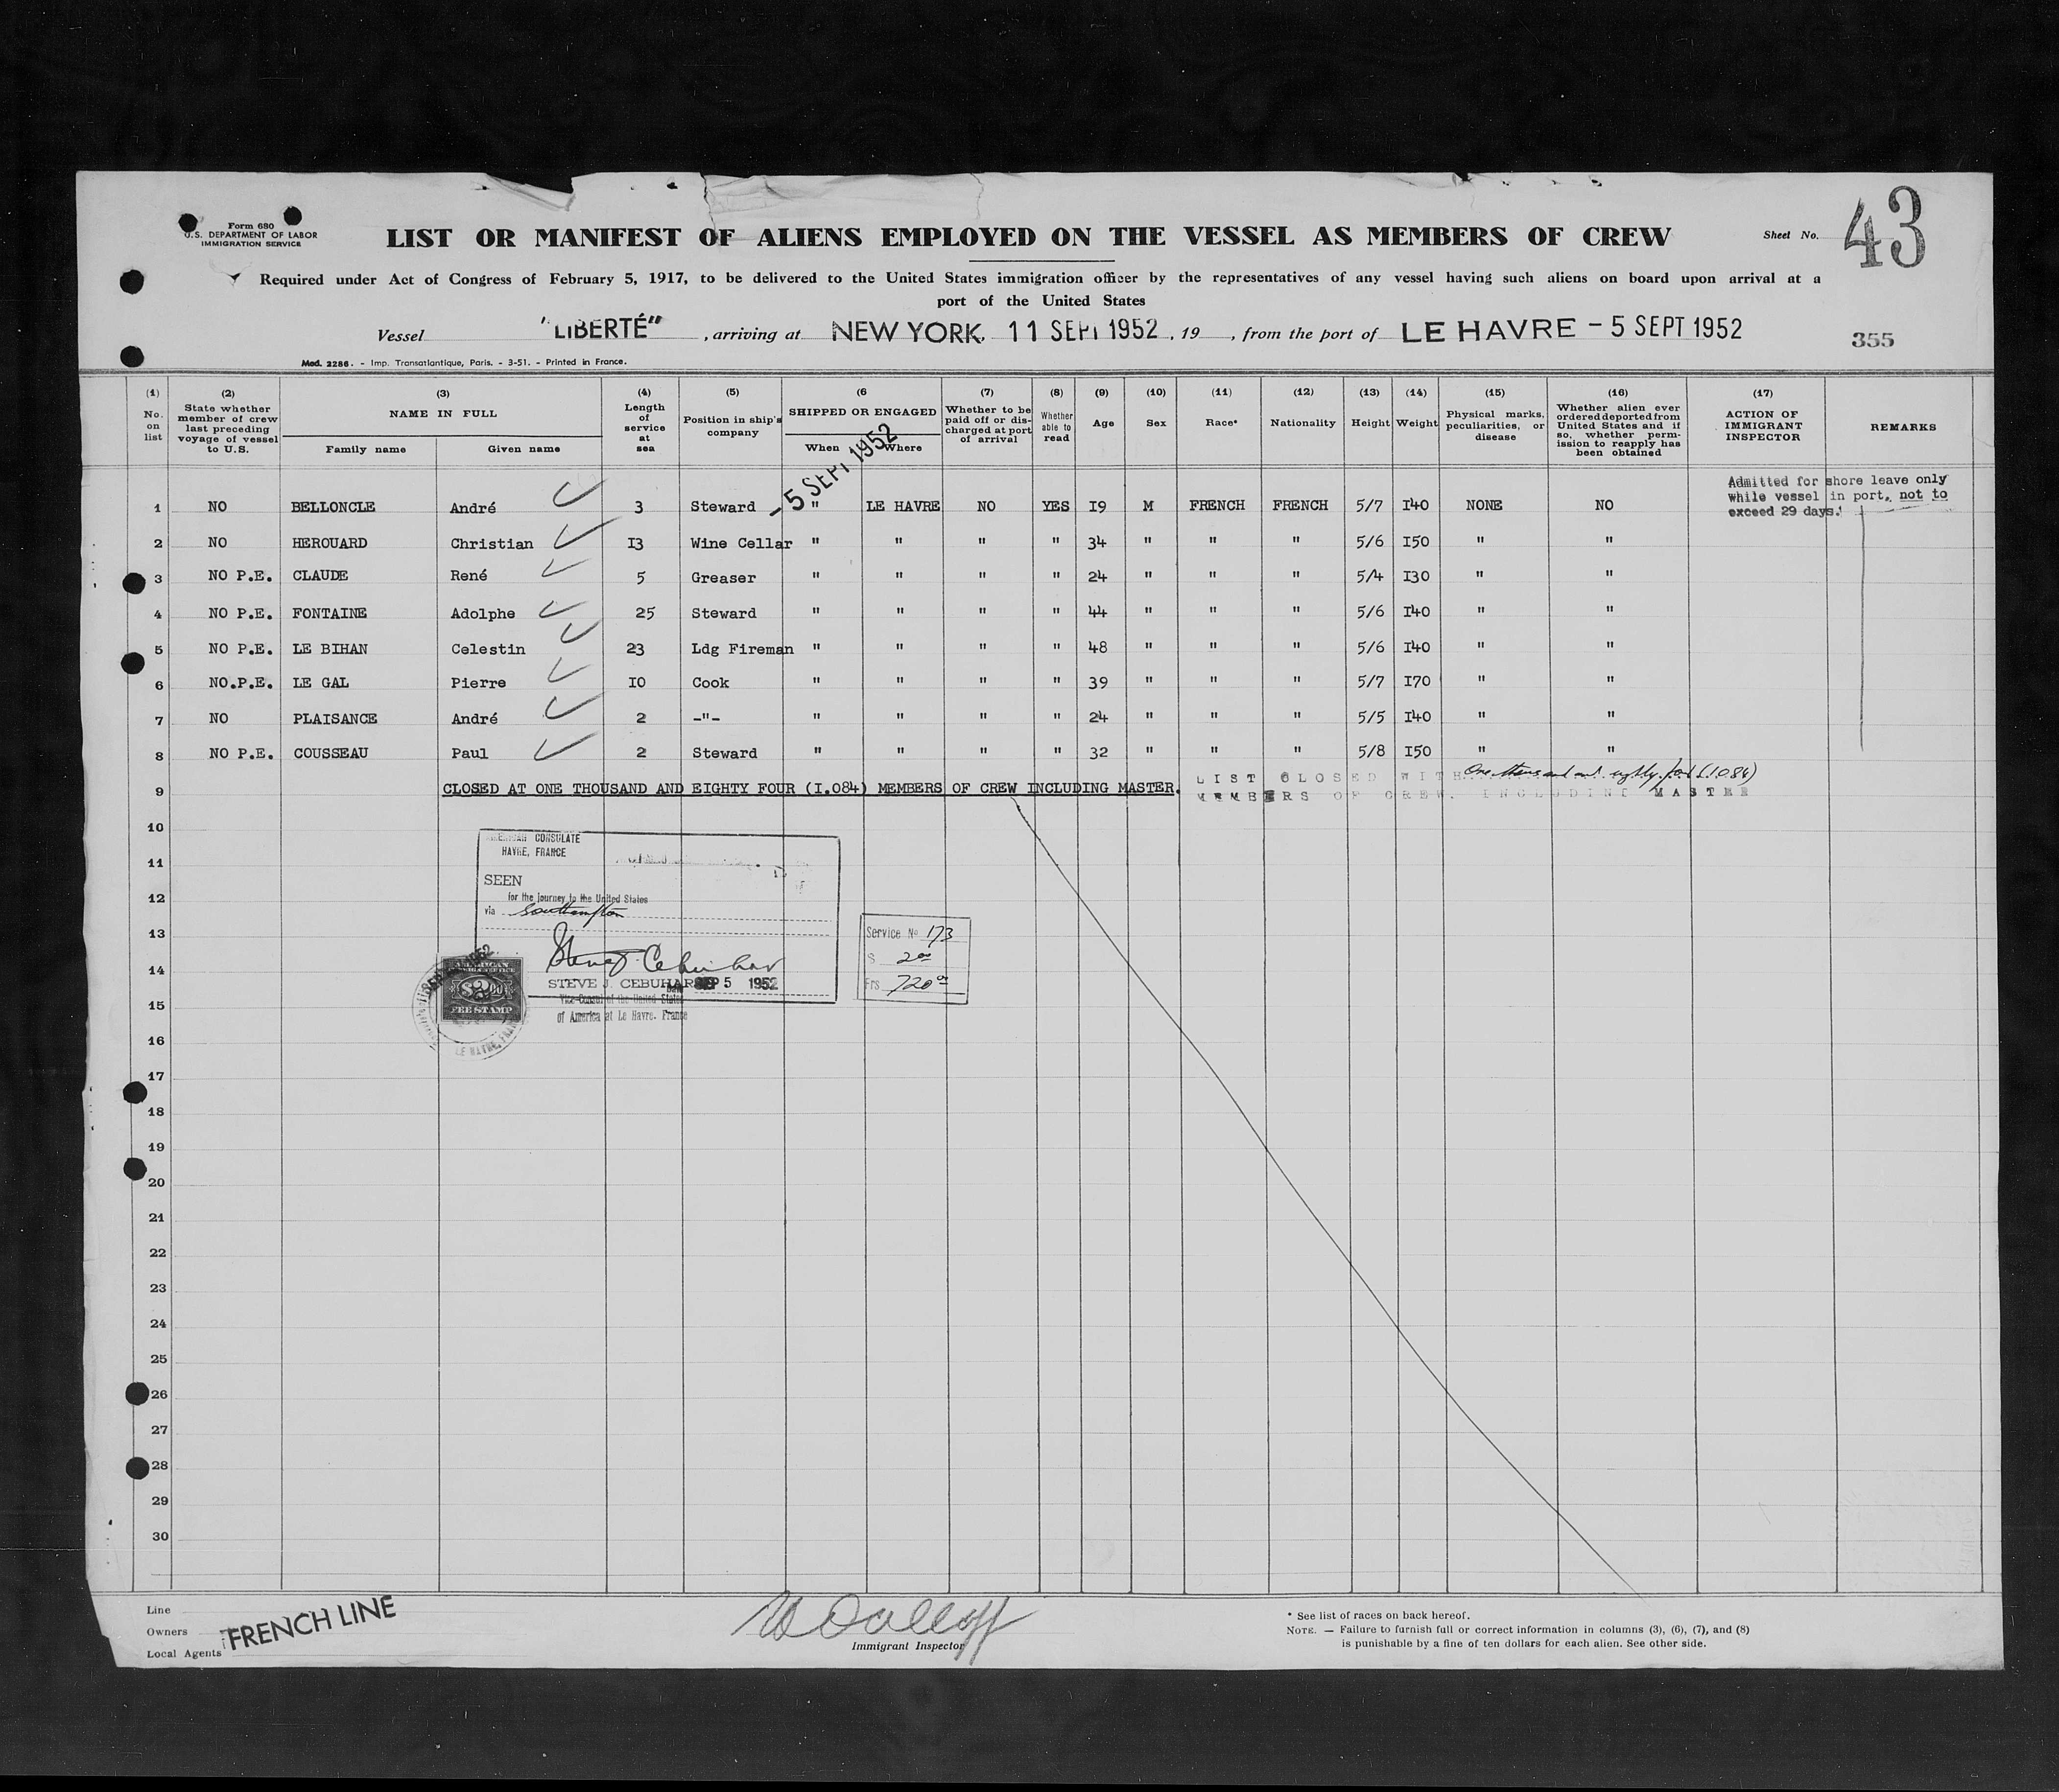 Form 680
U.S. DEPARTMENT OF LABOR
IMMIGRATION SERVICE
LIST OR MANIFEST OF ALIENS EMPLOYED ON THE VESSEL AS MEMBERS OF CREW
Sheet No. 43
Required under Act of Congress of February 5, 1917, to be delivered to the United States immigration officer by the representatives of any vessel having such aliens on board upon arrival at a
port of the United States
Vessel "LIBERTÉ", arriving at NEW YORK, 11 SEPT 1952, 19 , from the port of LE HAVRE - 5 SEPT 1952
355
Mod. 2286. - Imp. Transatlantique, Paris. - 3-51. - Printed in France.
(1) No. on list
(2) State whether member of crew last preceding voyage of vessel to U.S.
(3) NAME IN FULL Family name Given name
(4) Length of service at sea
(5) Position in ship's company
(6 SHIPPED OR ENGAGED When Where
(7) Whether to be paid off or discharged at port of arrival
(8) Whether able to read
(9) Age
(10) Sex
(11) Race*
(12) Nationality
(13) Height
(14) Weight
(15) Physical marks, peculiarities, or disease
(16) Whether alien ever ordered deported from United States and if so, whether permission to reapply has been obtained
(17) ACTION OF IMMIGRANT INSPECTOR
REMARKS
- 5 SEPT 1952
Admitted for shore leave only
while vessel in port, not to
exceed 29 days.
1 NO BELLONCLE André 3 Steward " LE HAVRE NO YES 19 M FRENCH FRENCH 5/7 140 NONE NO
2 NO HEROUARD Christian 13 Wine Cellar " " " " 34 " " " 5/6 150 " "
3 NO P.E. CLAUDE René 5 Greaser " " " " 24 " " " 5/4 130 " "
4 NO P.E. FONTAINE Adolphe 25 Steward " " " " 44 " " " 5/6 140 " "
5 NO P.E. LE BIHAN Celestin 23 Ldg Fireman " " " " 48 " " " 5/6 140 " "
6 NO.P.E. LE GAL Pierre 10 Cook " " " " 39 " " " 5/7 170 " "
7 NO PLAISANCE André 2 -"- " " " " 24 " " " 5/5 140 " "
8 NO P.E. COUSSEAU Paul 2 Steward " " " " 32 " " " 5/8 150 " "
9 CLOSED AT ONE THOUSAND AND EIGHTY FOUR (1.084) MEMBERS OF CREW INCLUDING MASTER.
LIST CLOSED WITH One thousand and eighty four (1084)
MEMBERS OF CREW. INCLUDING MASTER
10
11
12
13
14
15
16
17
18
19
20
21
22
23
24
25
26
27
28
29
30
AMERICAN CONSULATE
HAVRE, FRANCE
SEEN
for the journey to the United States
via Southampton
STEVE J. CEBUHAR SEP 5 1952
Vice-Consul of the United States
of America at Le Havre. France
AMERICAN
$2.00
FEE STAMP
LE HAVRE, FRANCE
Service No 173
$ 2.00
Frs 720.00
Line
Owners
Local Agents
FRENCH LINE
Immigrant Inspector
* See list of races on back hereof.
NOTE. — Failure to furnish full or correct information in columns (3), (6), (7), and (8)
is punishable by a fine of ten dollars for each alien. See other side.